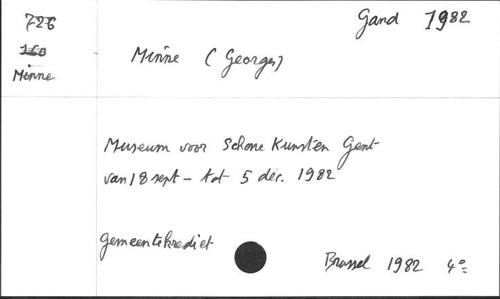 726
Gand 1982
160
Minne
Minne (Georges)
Museum voor Schone Kunsten Gent
van 18 sept - tot 5 dec. 1982
Gemeentekrediet
Brussel 1982 4°